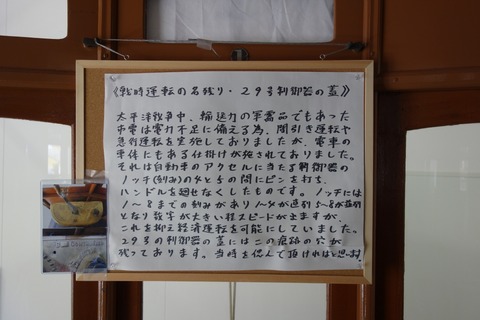 《戦時運転の名残り・29号制御器の蓋》
太平洋戦争中、輸送力の軍需品でもあった
市電は電力不足に備える為、間引き運転や
急行運転を実施しておりましたが、電車の
車体にもある仕掛けが施されておりました。
それは自動車のアクセルに当たる制御器の
ノッチ(刻み)の4と5の間にピンを打ち、
ハンドルを廻せなくしたものです。ノッチには
1〜8までの刻みがあり1〜4が直列5〜8が並列
となり数字が大きい程スピードが出ますが、
これを抑え経済運転を可能にしていました。
29号の制御器の蓋にはこの痕跡の穴が
残っております。当時を偲んで頂ければと思います。